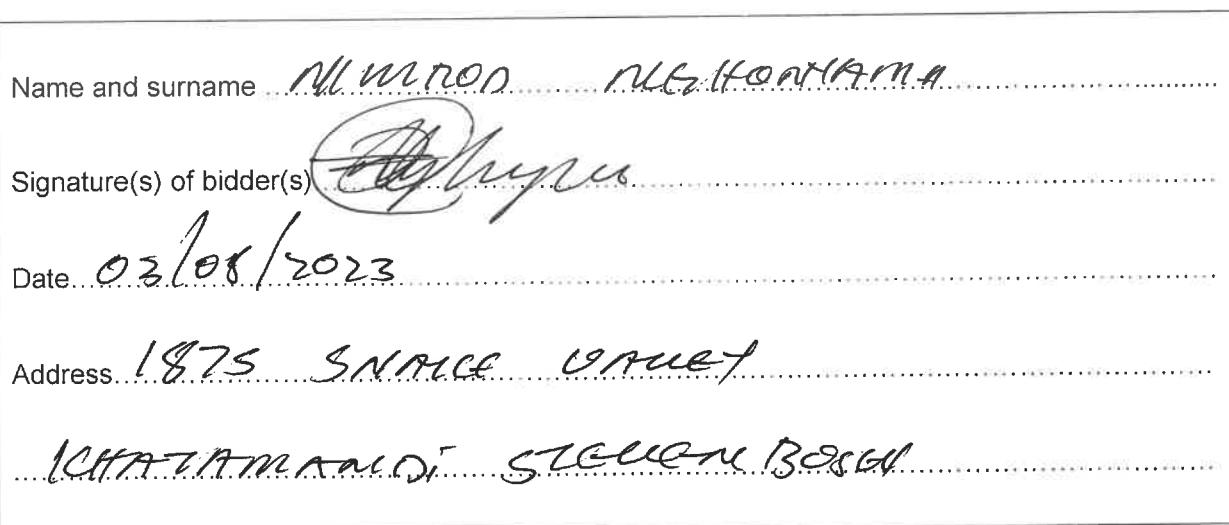 Name and surname NIMROD
Signature(s) of bidder(s)
Date 03/08/2023
Address 1875 SNAKE VALLEY
KHAYAMANDI STELLENBOSCH